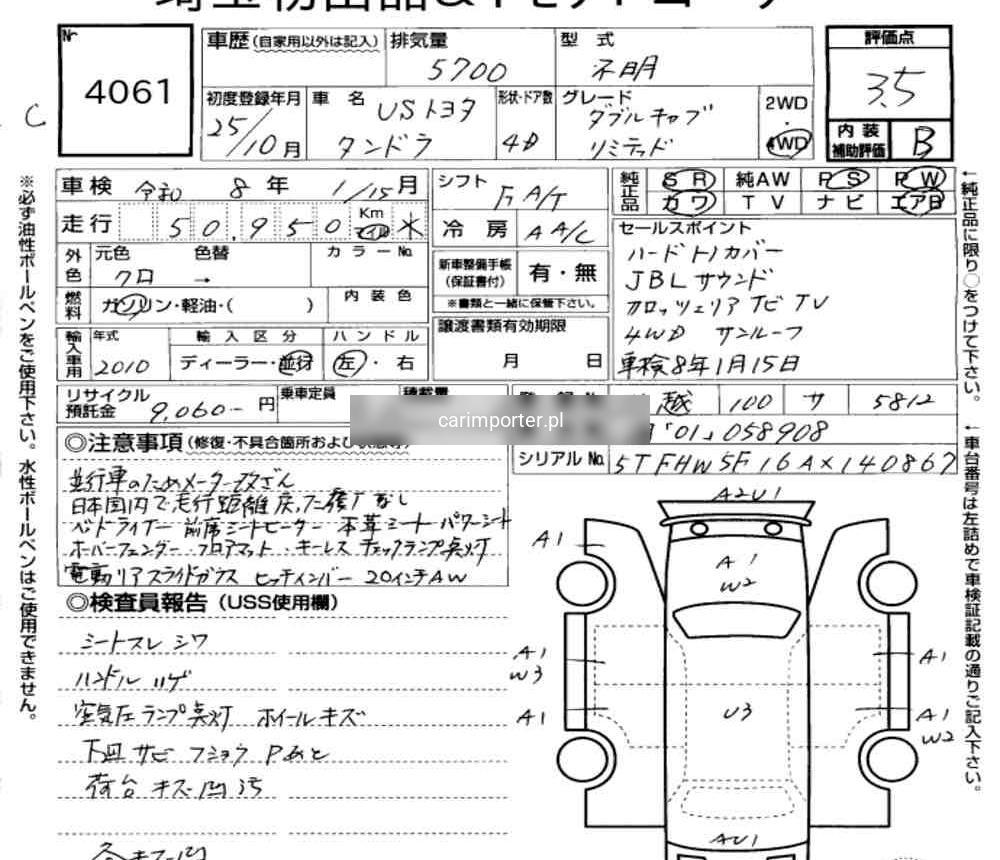 No.
4061
C
車歴(自家用以外は記入)
排気量
5700
型式
不明
評価点
3.5
初度登録年月
25/10月
車名
USトヨタ
タンドラ
形状・ドア数
4D
グレード
ダブルキャブ
リミテッド
2WD
・
4WD
内装
補助評価
B
車検 令和 8年 1/15月
シフト
F A/T
純正品
SR
純AW
PS
PW
カワ
TV
ナビ
エアB
走行
50,950
Km
マイル
冷房
A A/C
セールスポイント
ハードトノカバー
JBLサウンド
カロッツェリア ナビ TV
4WD サンルーフ
車検8年1月15日
外色
元色
クロ
色替
→
カラーNo.
新車整備手帳
(保証書付)
有・無
※書類と一緒に保管下さい。
燃料
ガソリン・軽油・( )
内装色
譲渡書類有効期限
月 日
輸入車用
年式
2010
輸入区分
ディーラー・並行
ハンドル
左・右
リサイクル
預託金
9,060-円
乗車定員
積載量
越
100
サ
5812
「01」058908
シリアルNo.
5TFHW5F16AX140867
carimporter.pl
◎注意事項
並行車のためメーター改ざん
日本国内で走行距離
ベッドライナー 前席シートヒーター 本革シート パワーシート
オーバーフェンダー・フロアマット・キーレス チェックランプ点灯
電動リアスライドガラス ヒッチメンバー 20インチAW
◎検査員報告(USS使用欄)
シートスレ シワ
ハンドル ハゲ
空気圧ランプ点灯 ホイールキズ
下回サビ フショク Pあと
荷台 キズ凹汚
各キズ凹
A2U1
A1
A1
W2
A1
W3
A1
U3
A1
A1
W2
AU1
※必ず油性ボールペンをご使用下さい。水性ボールペンはご使用できません。
←純正品に限り○をつけて下さい。
←車台番号は左詰めで車検証記載の通りご記入下さい。